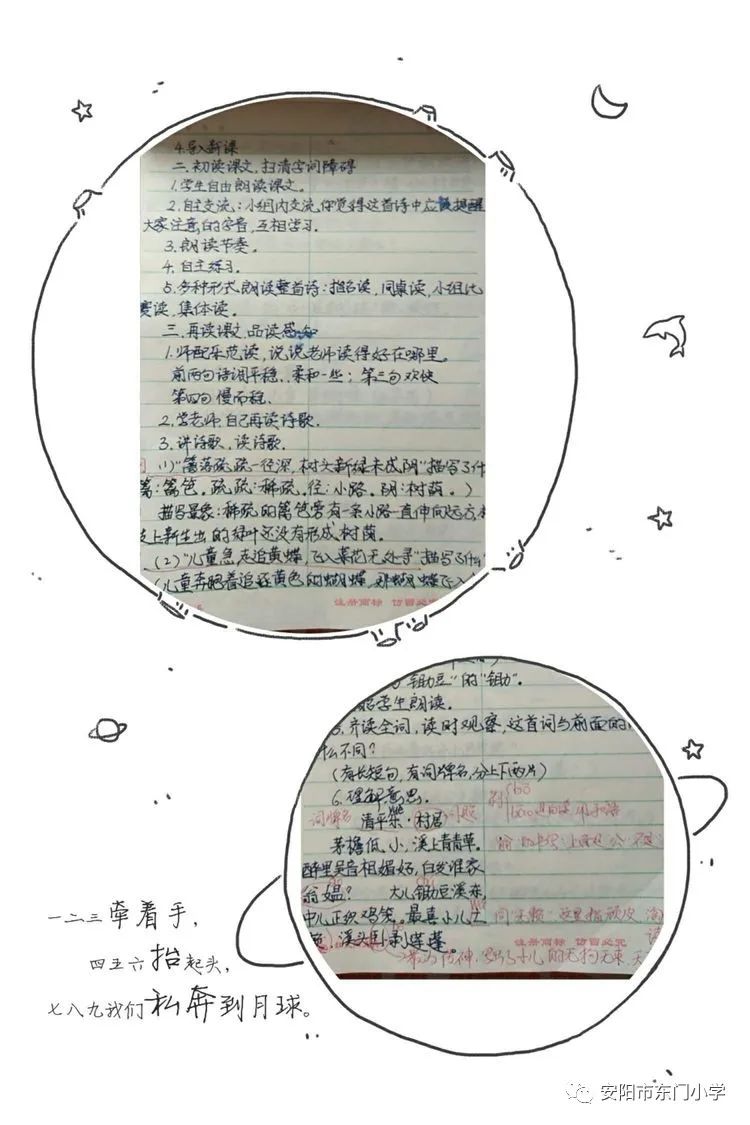 4.导入新课
二.初读课文,扫清字词障碍
1.学生自由朗读课文。
2.自主交流:小组内交流你觉得这首诗中应该提醒
大家注意的字音,互相学习.
3.朗读节奏。
4.自主练习.
5.多种形式朗读整首诗:指名读,同桌读,小组比
赛读,集体读。
三.再读课文,品读感知
1.师配乐范读,说说老师读得好在哪里。
前两句语调平稳、柔和一些;第三句欢快
第四句慢而稳.
2.学老师,自己再读诗歌.
3.讲诗歌,读诗歌.
(1)"篱落疏疏一径深,树头新绿未成阴"描写了什
篱:篱笆.疏疏:稀疏.径:小路.阴:树荫。)
描写景象:稀疏的篱笆旁有一条小路一直伸向远方,
枝上新生出的绿叶还没有形成树荫。
(2)"儿童急走追黄蝶,飞入菜花无处寻"描写了什么
(儿童奔跑着追逐黄色的蝴蝶,那蝴蝶飞入
注册商标 仿冒必究
锄豆"的"锄"。
学生朗读。
5.齐读全词,读时观察,这首词与前面的
什么不同?
(有长短句,有词牌名,分上下两片)
6.理解意思.
词牌名 清平乐·村居 词题
茅檐低小,溪上青青草。
醉里吴音相媚好,白发谁家
翁媪? 大儿锄豆溪东,
中儿正织鸡笼。最喜小儿亡
赖,溪头卧剥莲蓬。
注册商标 仿冒必究
一二三牵着手,
四五六抬起头,
七八九我们私奔到月球。
安阳市东门小学